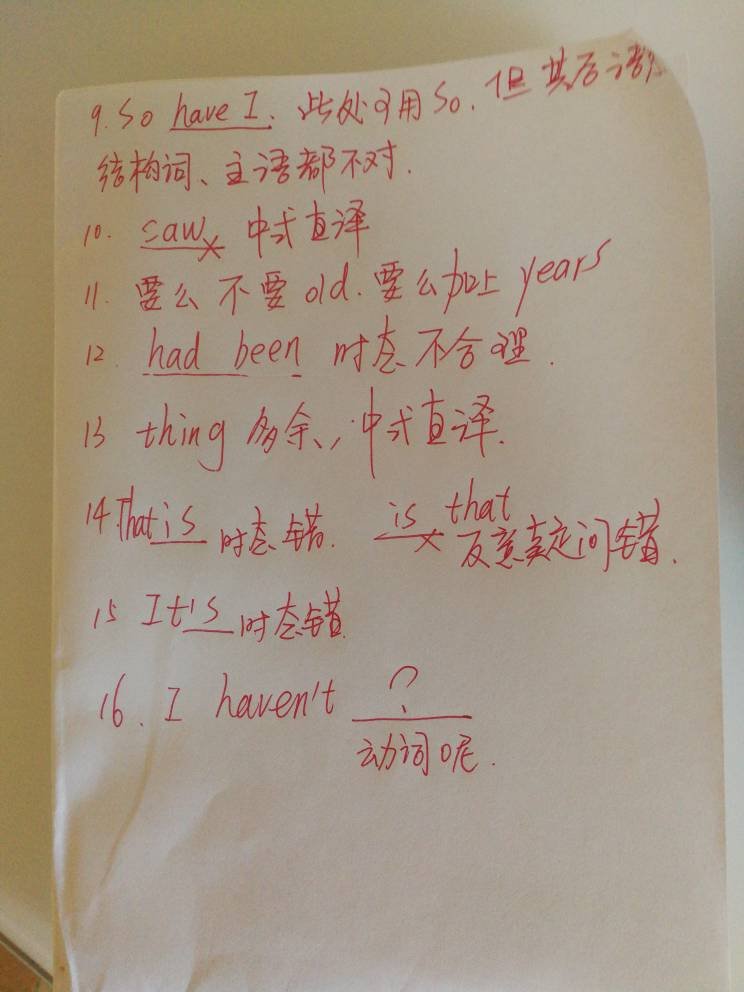 9. So have I. 此处可用So. 但其后语
结构词、主语都不对.
10. saw 中式直译
11. 要么不要old. 要么加上years
12. had been 时态不合理.
13 thing 多余, 中式直译.
14 That is 时态错. is that
反意疑问错.
15 It is 时态错
16. I haven't ?
动词呢.